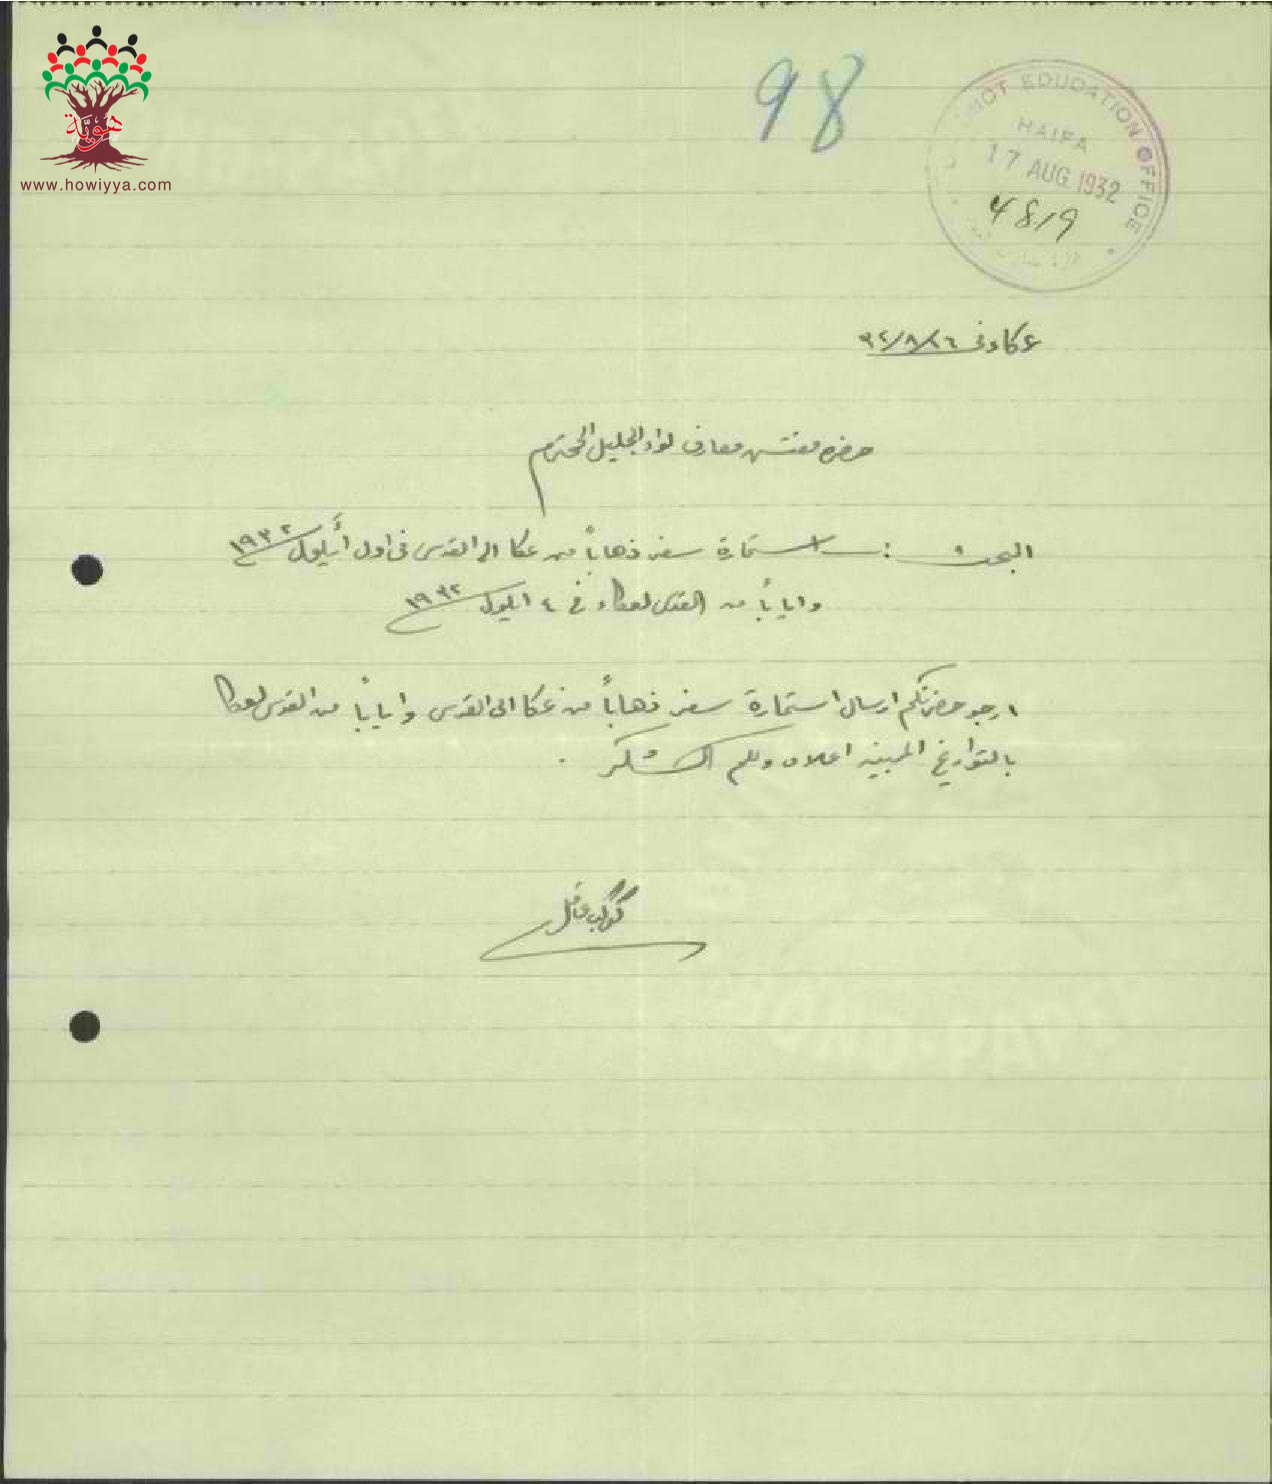 هويّة
www.howiyya.com
98
DISTRICT EDUCATION OFFICE
HAIFA
17 AUG 1932
4819
عكا في ١٦/٨/٣٢
حضرة مفتش معارف لواء الجليل المحترم
البحث : استمارة سفر ذهاباً من عكا الى القدس في اول أيلول ١٩٣٢
واياباً من القدس لعكا في ٤ ايلول ١٩٣٢
ارجو حضرتكم ارسال استمارة سفر ذهاباً من عكا الى القدس واياباً من القدس لعكا
بالتواريخ المبينه اعلاه ولكم الشكر .